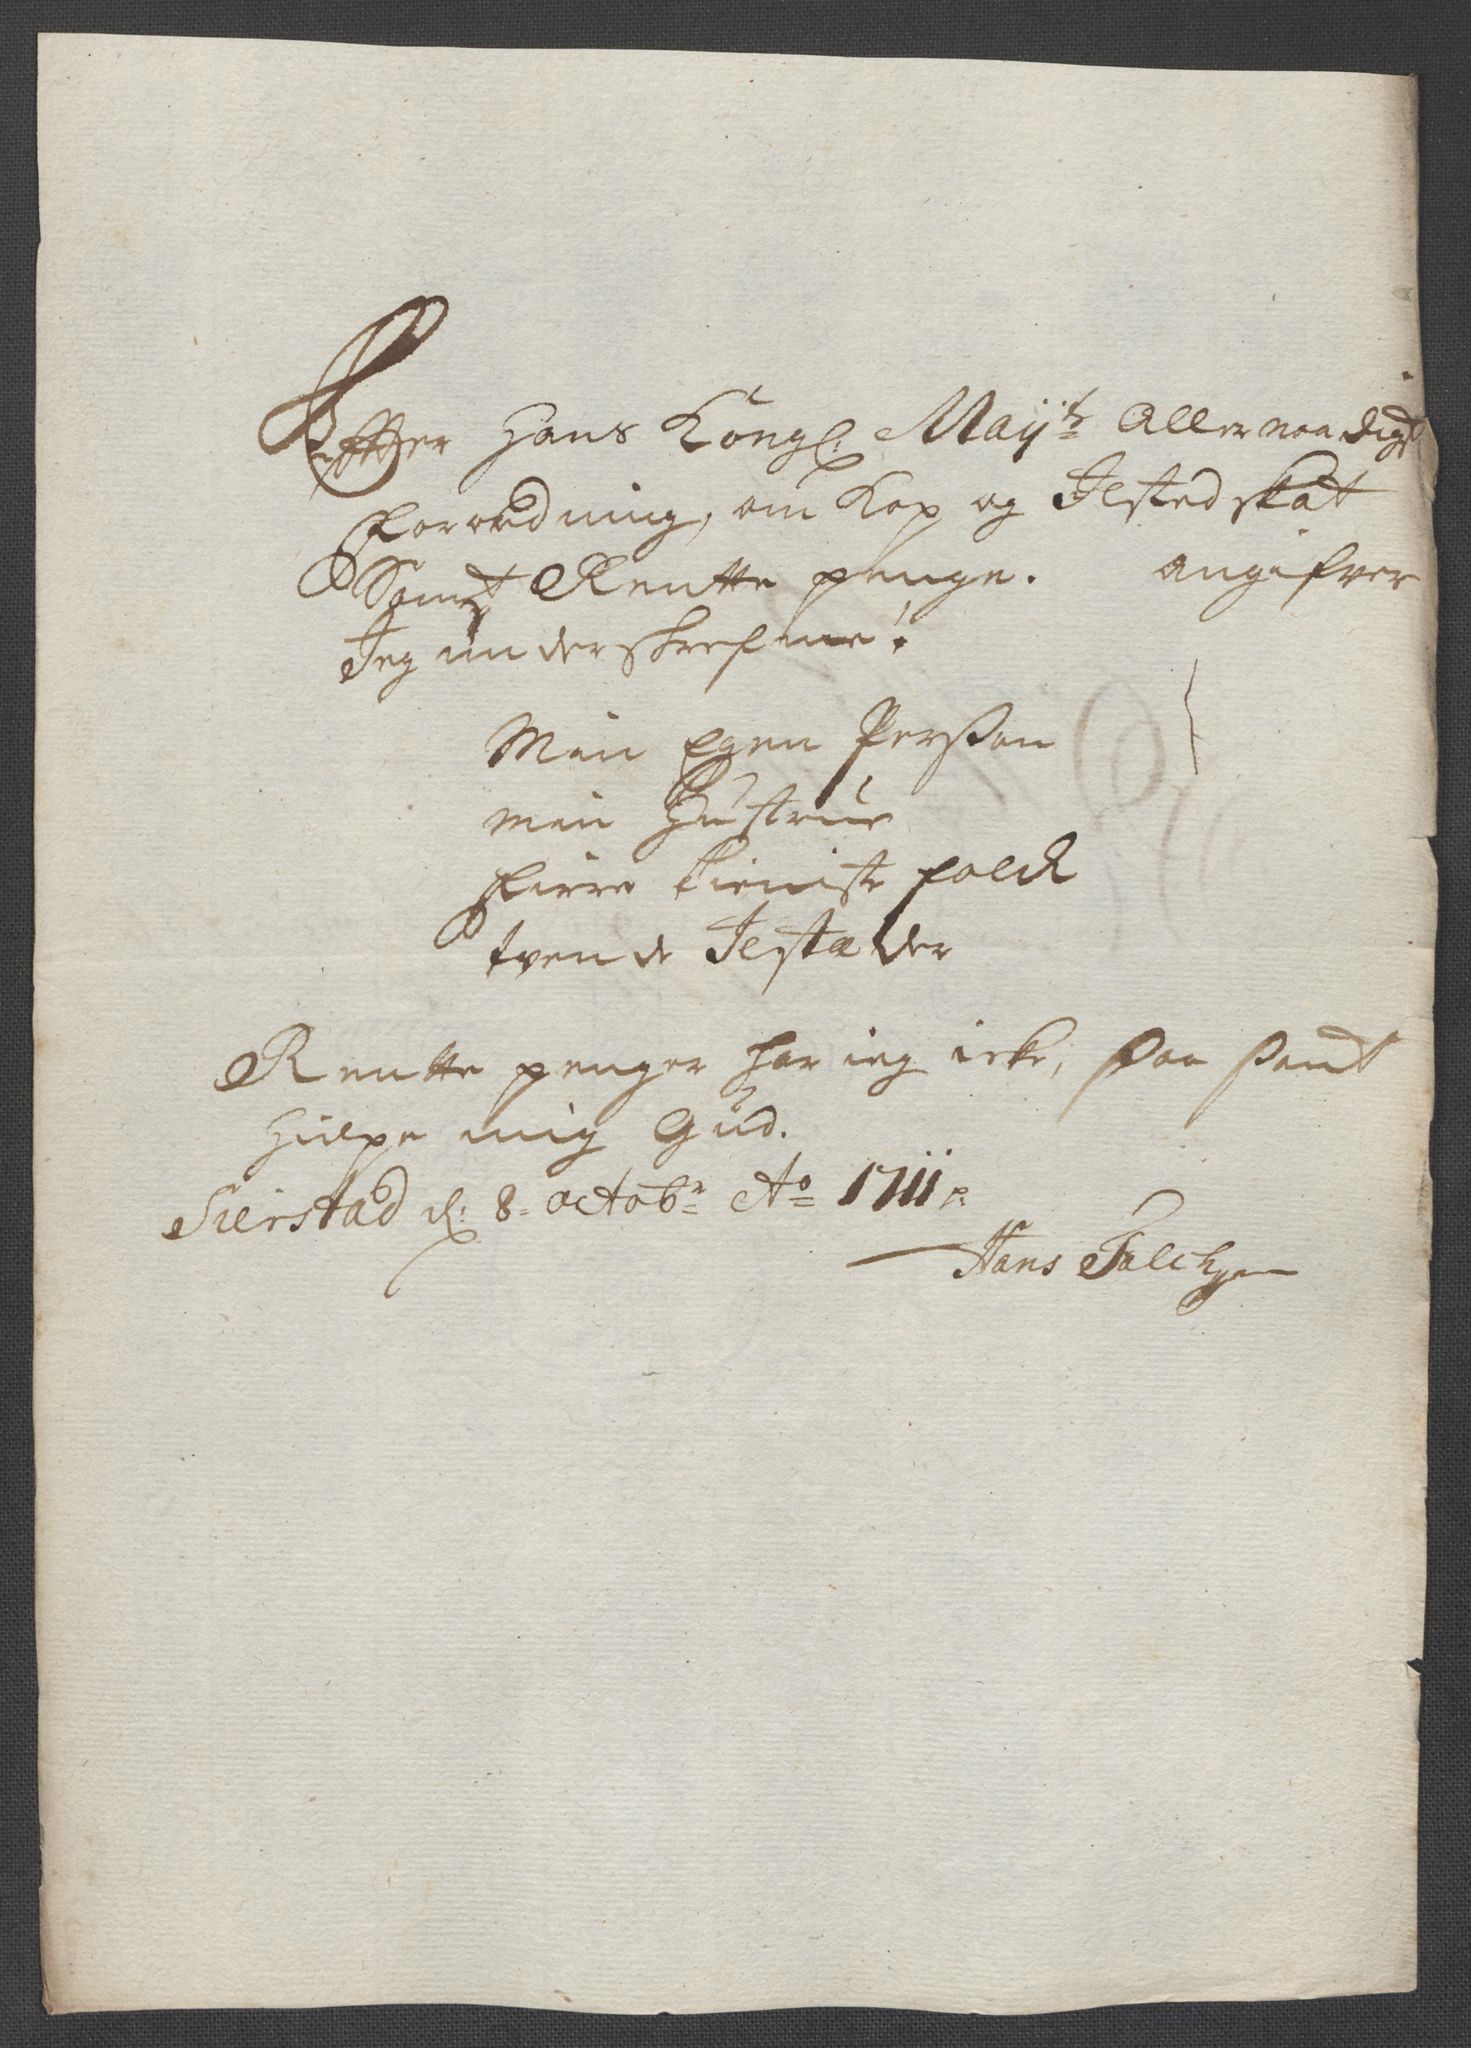 Effter Hans Kongl: Maÿtz Allernaadigst
Forordning, om Kop og Ilsted skat
Sampt Rentte penge. angifver
Jeg underskrefne!
Min Egen Perßon
min Hustrue
Firre tieniste folck
tvende Ilstæder
Rentte penger har ieg icke, saa sandt
hielpe mig Gud.
Sierstad d: 8. octobr Ao 1711 p.
Hans Falch